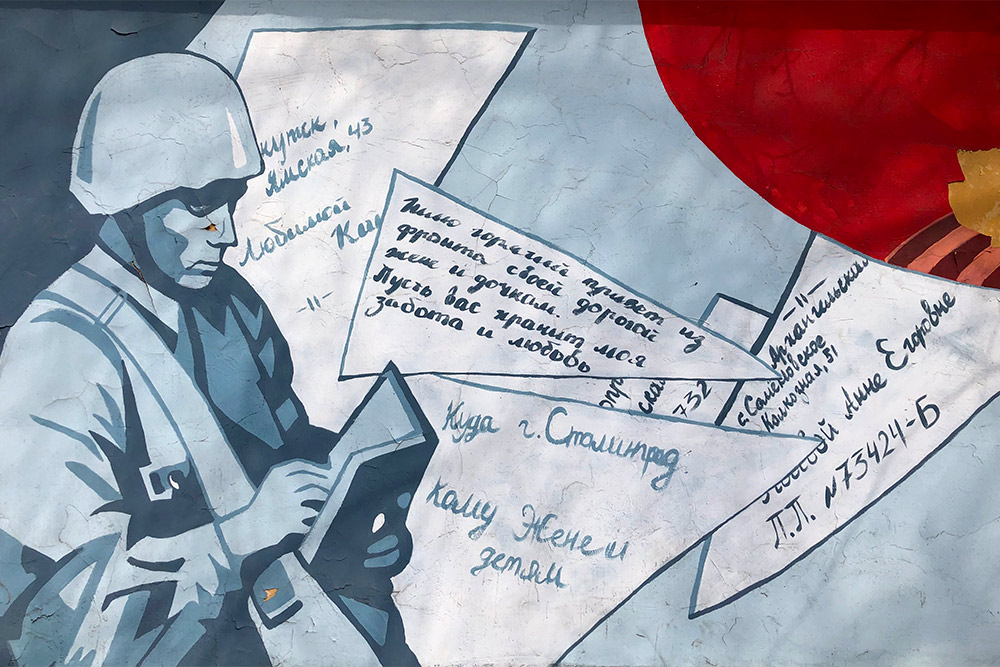 Ямская, 43
Любимой
-"-
Шлю горячий привет из
фронта своей дорогой
жене и дочкам.
Пусть вас хранит моя
забота и любовь
732
Куда г. Сталинград
Кому Жене и
детям
-"-
Архангельская
с. Семёновское
Колхозная, 51
Анне Егоровне
П.П. №73424-Б